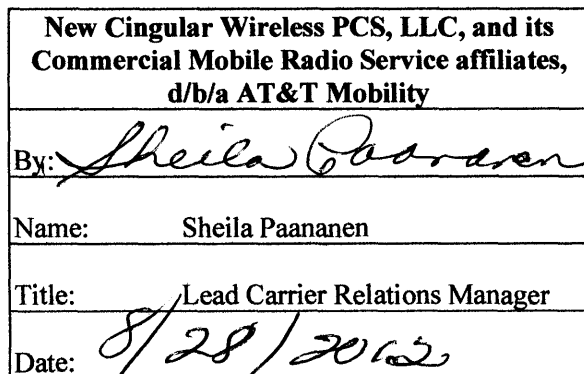 New Cingular Wireless PCS, LLC, and its
Commercial Mobile Radio Service affiliates,
d/b/a AT&T Mobility
By: Sheila Paananen
Name: Sheila Paananen
Title: Lead Carrier Relations Manager
Date: 8/28/2012